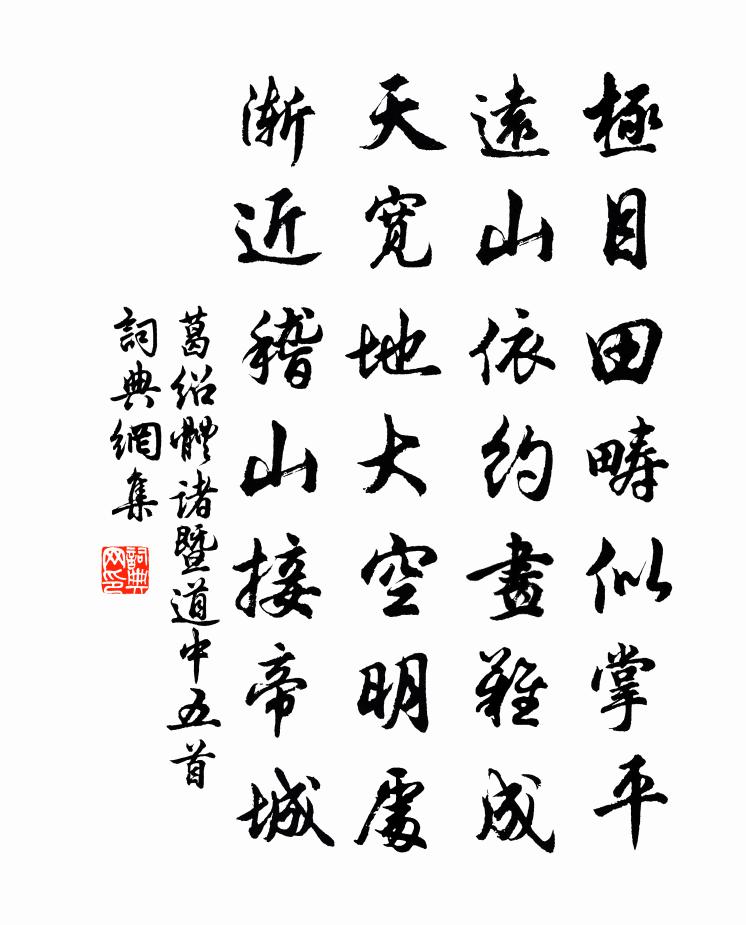 極目田疇似掌平
遠山依約畫難成
天寬地大空明處
漸近稽山接帝城
葛绍體诸暨道中五首
詞典網集
詞典網印